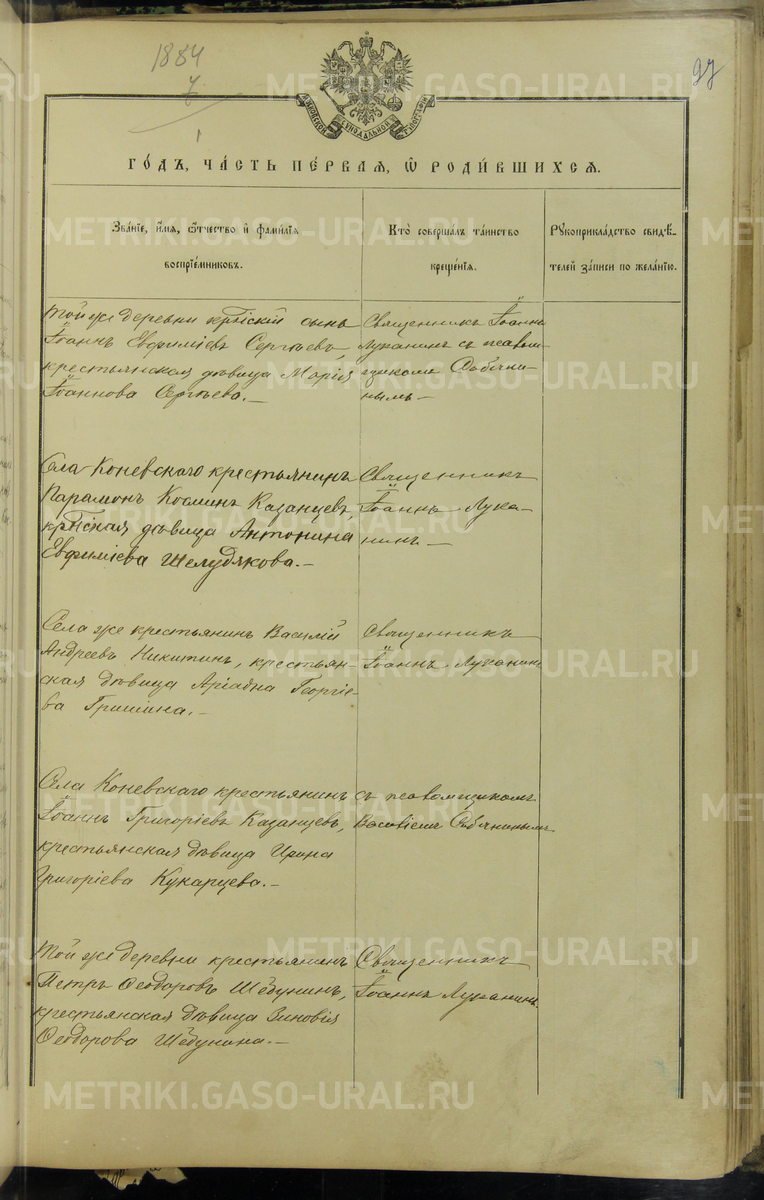 1884
7
1
97
МОСКОВСКОЙ СѴНОДАЛЬНОЙ ТѴПОГРАФІИ
ГО́ДЪ, ЧА́СТЬ ПЕ́РВАЯ, Ѽ РОДИ́ВШИХСЯ.
Зва́нїе, и҆́мя, ѻ҆́тчество и҆ фами́лїя
воспрїе́мниковъ.
Кто̀ соверша́лъ та́инство
креще́нїя.
Рꙋкоприкла́дство свидѣ́-
телей за́писи по жела́нїю.
Той же деревни кртⷭьнскій сынъ
Іоаннъ Евфиміевъ Сергѣевъ,
крестьянская дѣвица Марія
Іоаннова Сергѣева.—
Священникъ Іоаннъ
Луканинъ съ псалом-
щикомъ Собяни-
нымъ—
Села Коневскаго крестьянинъ
Парамонъ Косминъ Казанцевъ,
крⷭтьнская дѣвица Антонина
Евфиміева Шелудякова.—
Священникъ
Іоаннъ Лука-
нинъ.—
Села же крестьянинъ Василій
Андреевъ Никитинъ, крестьян-
ская дѣвица Аріадна Георгіе-
ва Гришина.—
Священникъ
Іоаннъ Луканинъ
Села Коневскаго крестьянинъ
Іоаннъ Григоріевъ Казанцевъ,
крестьянская дѣвица Ирина
Григоріева Кукарцева.—
съ псаломщикомъ
Собянинымъ
Той же деревни крестьянинъ
Петръ Ѳеодоровъ Шебунинъ,
крестьянская дѣвица Зиновія
Ѳеодорова Шебунина.—
Священникъ
Іоаннъ Луканинъ.
METRIKI.GASO-URAL.RU